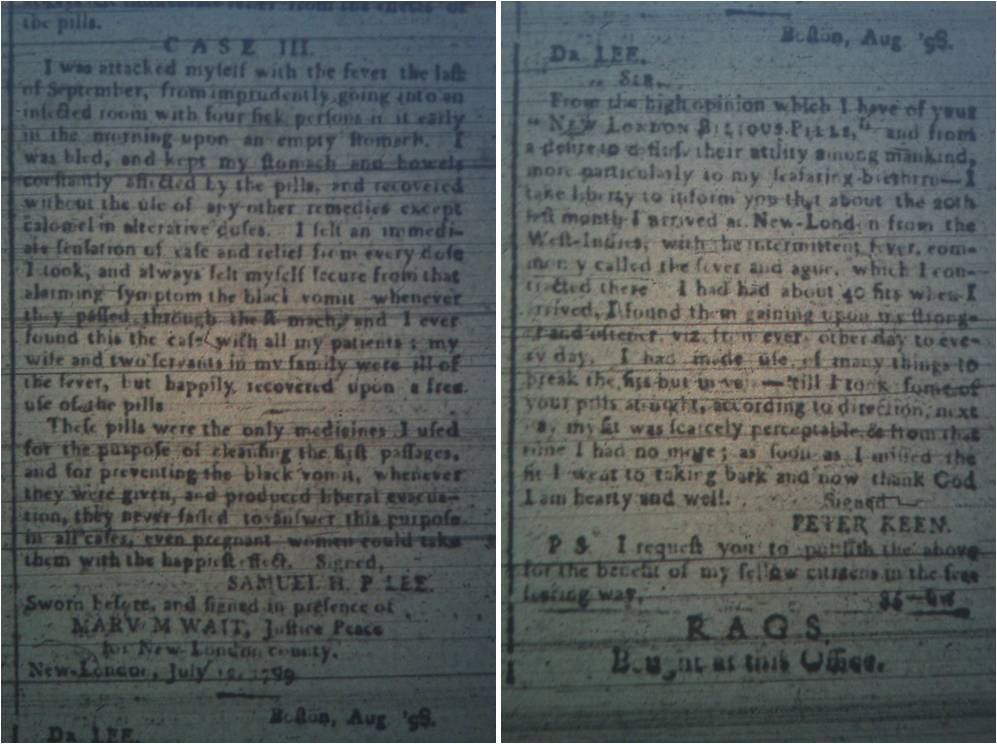 the pills.
CASE III.
I was attacked myſelf with the fever the laſt
of September, from imprudently going into an
infected room with four ſick perſons in it early
in the morning upon an empty ſtomach. I
was bled, and kept my ſtomach and bowels
conſtantly affected by the pills, and recovered
without the uſe of any other remedies except
calomel in alterative doſes. I felt an immedi-
ate ſenſation of eaſe and relief from every doſe
I took, and always felt myſelf ſecure from that
alarming ſymptom the black vomit whenever
they paſſed through the ſtomach, and I ever
found this the caſe with all my patients; my
wife and two ſervants in my family were ill of
the fever, but happily recovered upon a free
uſe of the pills
Theſe pills were the only medicines I uſed
for the purpoſe of cleanſing the firſt paſſages,
and for preventing the black vomit, whenever
they were given, and produced liberal evacua-
tion, they never failed to anſwer this purpoſe
in all caſes, even pregnant women could take
them with the happieſt effect. Signed,
SAMUEL H. P LEE.
Sworn before, and ſigned in preſence of
MARV M WAIT, Juſtice Peace
for New London county.
New-London, July 1799
Boſton, Aug '98.
Dr. LEE.
Boſton, Aug '98.
Dr. LEE,
Sir,
From the high opinion which I have of your
"New London Bilious Pills," and from
a deſire to diffuſe their utility among mankind,
more particularly to my ſeafaring brethren—I
take liberty to inform you that about the 20th
laſt month I arrived at New-London from the
Weſt-Indies, with the intermittent fever, com-
monly called the fever and ague, which I con-
tracted there I had had about 40 fits when I
arrived, I found them gaining upon me ſtrong-
er and oftener, viz. from every other day to eve-
ry day. I had made uſe of many things to
break the fits but in vain—'till I took ſome of
your pills at night, according to direction, next
day my fit was ſcarcely perceptable & from that
time I had no more; as ſoon as I miſſed the
fit I went to taking bark and now thank God
I am hearty and well. Signed
PETER KEEN.
P S I requeſt you to publiſh the above
for the benefit of my fellow citizens in the ſea
faring way. 86
RAGS,
Bought at this Office.